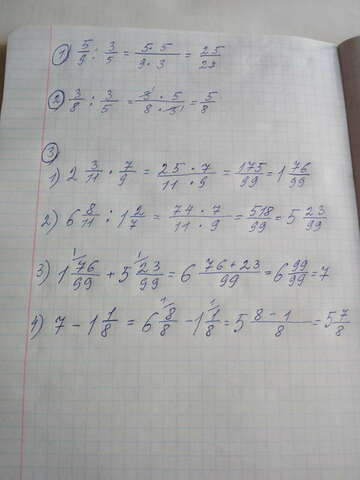 1) 5/9 : 3/5 = 5·5/9·3 = 25/27
2) 3/8 : 3/5 = 3·5/8·3 = 5/8
3)
1) 2 3/11 · 7/9 = 25·7/11·9 = 175/99 = 1 76/99
2) 6 8/11 : 1 2/7 = 74·7/11·9 = 518/99 = 5 23/99
3) 1 76/99 + 5 23/99 = 6 76+23/99 = 6 99/99 = 7
4) 7 - 1 1/8 = 6 8/8 - 1 1/8 = 5 8-1/8 = 5 7/8